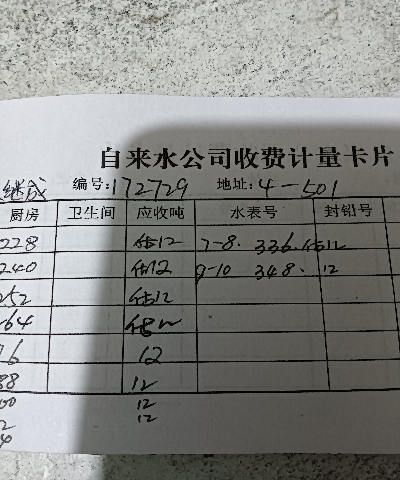 自来水公司收费计量卡片
继成 编号:172729 地址:4-501
厨房 卫生间 应收吨 水表号 封铅号
228 估12 7-8. 336. 估12
240 估12 9-10 348. 12
252 估12
64 估12
76 12
88 12
00 12
12